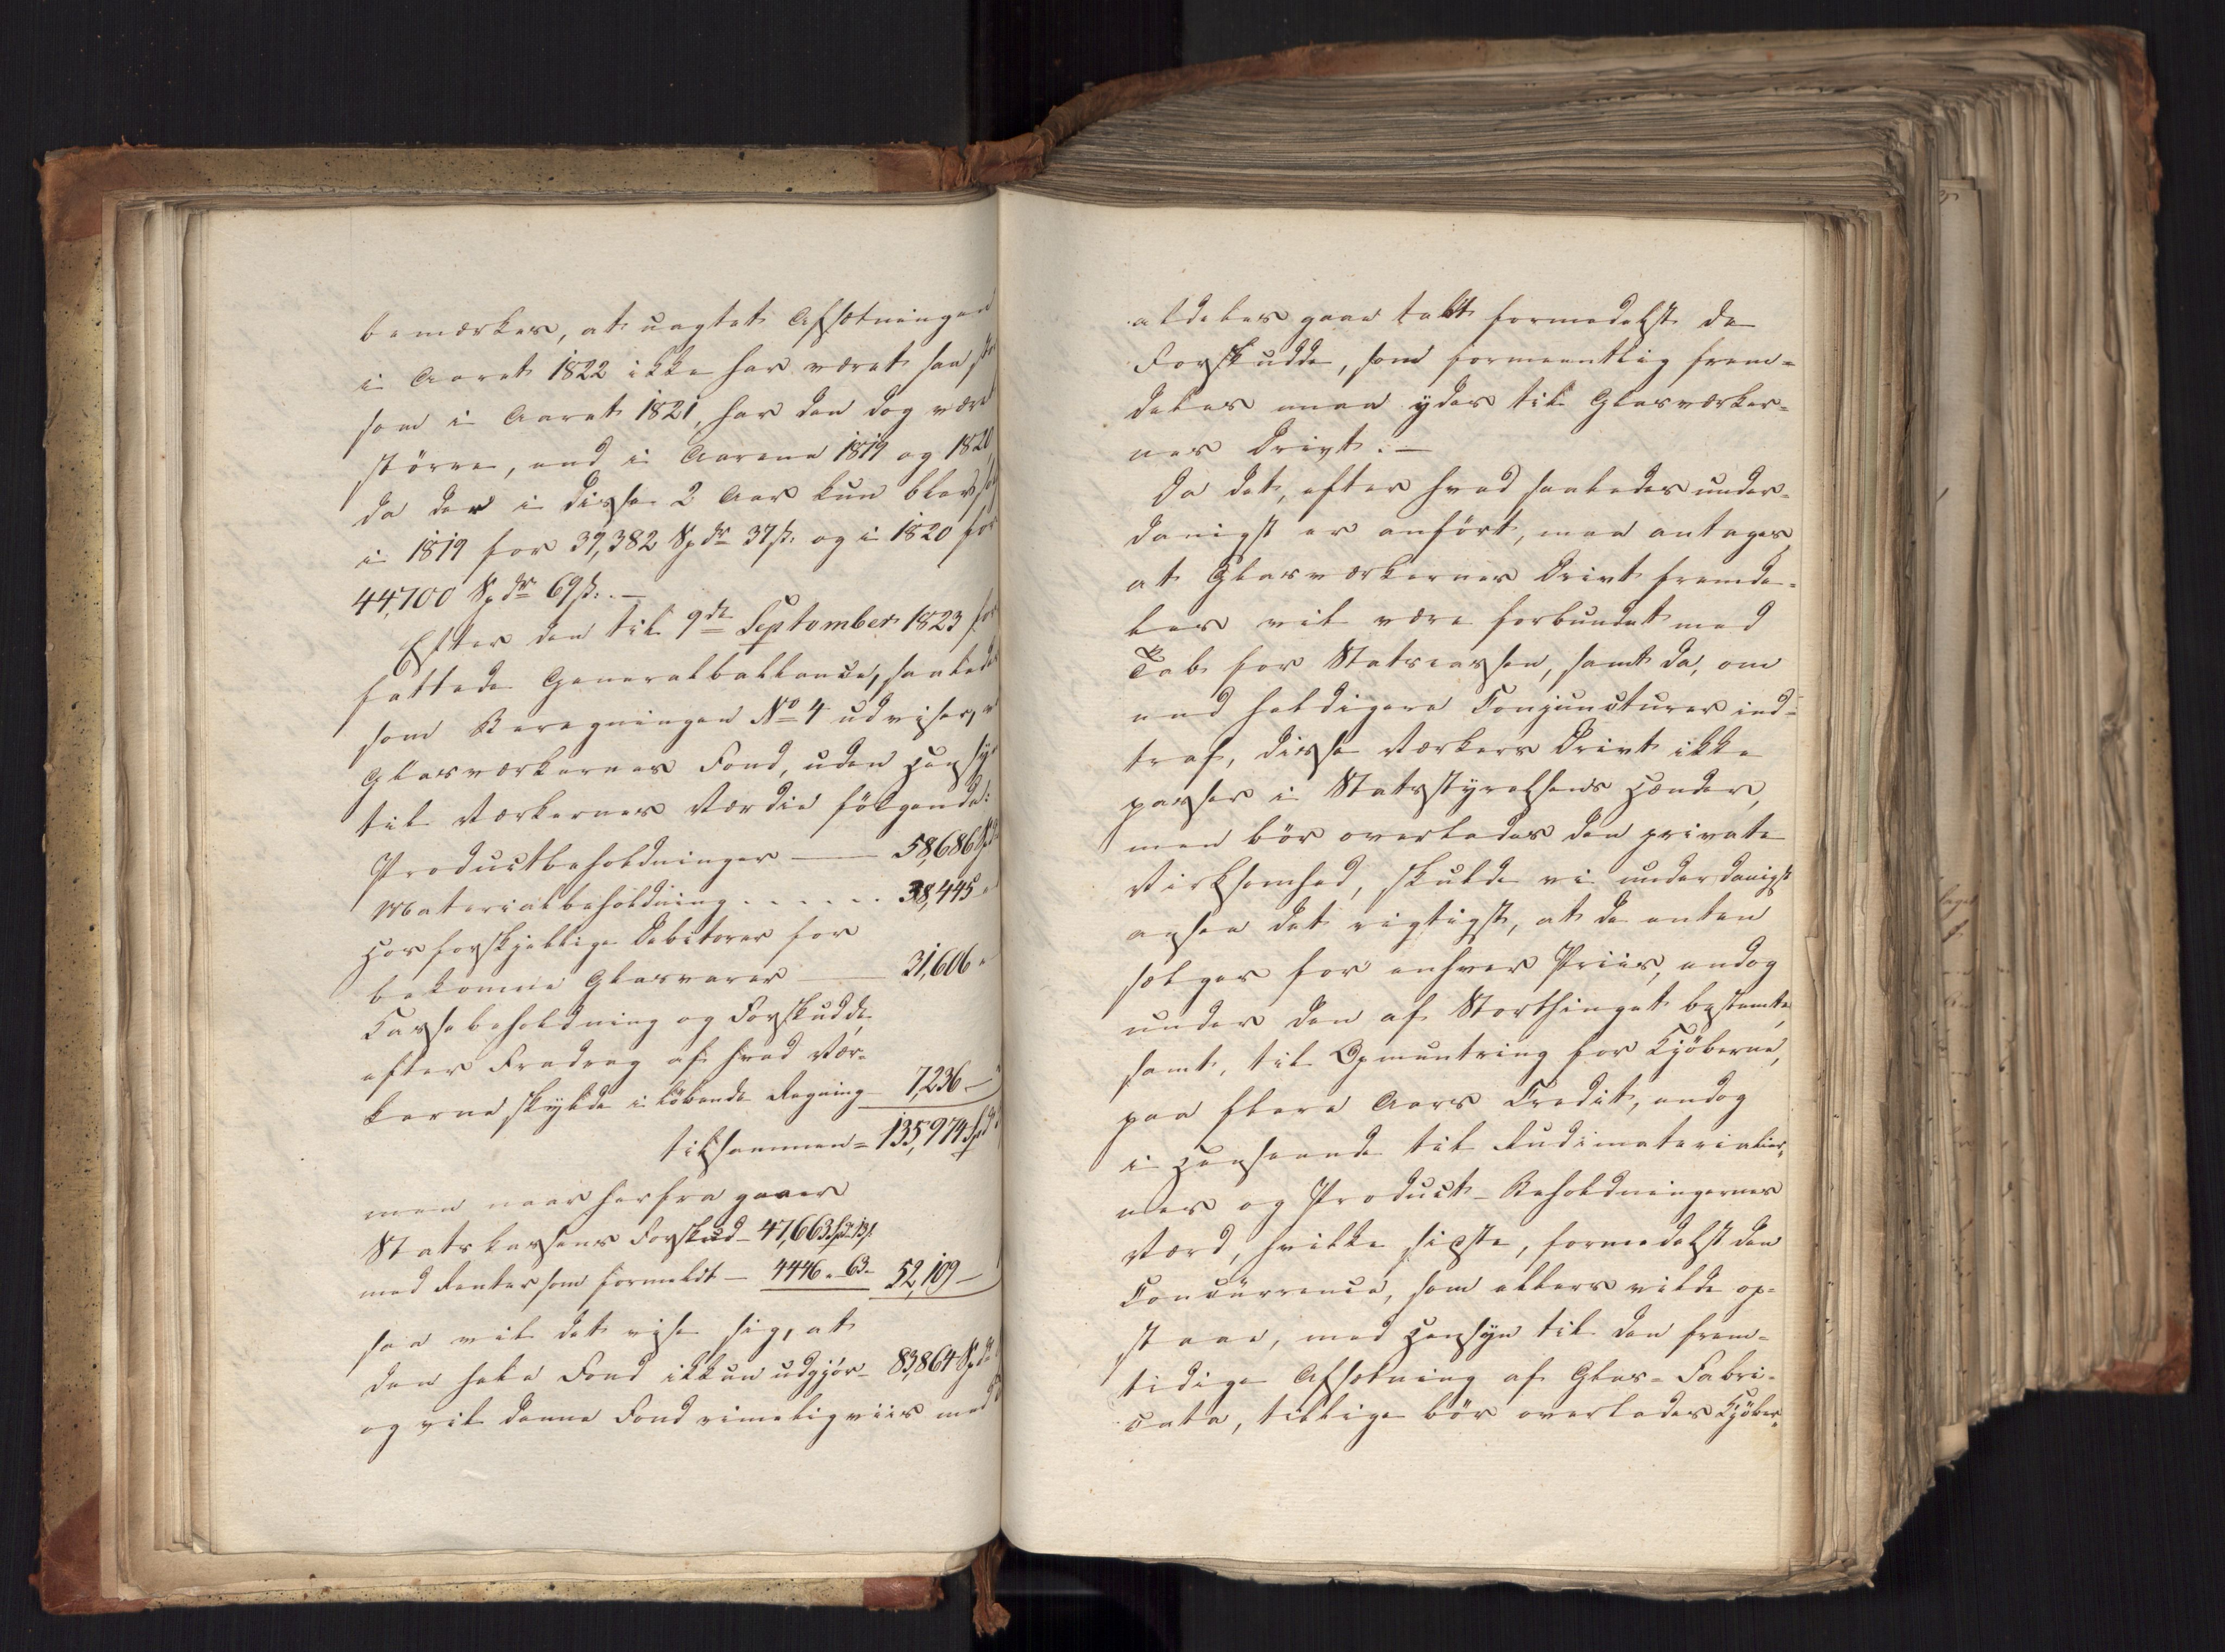 bemærkes, at uagtet Afsætningen
i Aaret 1822 ikke har været saa stor
som i Aaret 1821, har den dog været
större, end i Aarene 1819 og 1820
da der i disse 2 Aar kun blev
i 1819 for 39,382 Spdr 37 ß. og i 1820 for
44,700 Spdr 69 ß. . —
Efter den til 9de September 1823 for
fattede Generalballance, saaledes
som Beregningen No 4 udviser,
Glasværkernes Fond, uden Hensyn
til Værkernes Værdie fölgende:
Productbeholdninger — 58,686 Spdr
Materialbeholdning . . . . . . 38,445 "
Hos forskjellige Debitorer for
bekomne Glasvarer — 31,606 "
Cassebeholdning og Forskudde
efter Fradrag af hvad Vær-
kerne skylde i löbende Regning 7,236 —
tilsammen = 135,974 Spdr
men naar herfra gaaer
Statskassens Forskud - 47,663 Spdr 13 ß
med Renter som formeldt — 4446 " 63 - 52,109 —
saa vil det vise sig, at
den hele Fond ikkun udgjör - 83,864 Spdr
og vil denne Fond rimeligviis med
aldeles gaae tabt formedelst de
Forskudde, som formeentlig frem-
deles maae ydes til Glasværker-
nes Drivt. —
Da det, efter hvad saaledes under-
danigst er anfört, maa antages,
at Glasværkernes Drivt fremde-
les vil være forbundet med
Tab for Statscassen, samt da, om
end heldigere Conjuncturer ind-
traf, disse Værkers Drivt ikke
passer i Statsstyrelsens Hænder,
men bör overlades den private
Virksomhed, skulde vi underdanigst
ansee det rigtigst, at de enten
sælges for enhver Priis, endog
under den af Storthinget bestemte,
samt, til Opmuntring for Kjöberne,
paa flere Aars Credit, endog
i Henseende til Rudimaterialier-
nes og Product-Beholdningernes
Værd, hvilke sidste, formedelst den
Concurrence, som ellers vilde op-
staae, med Hensyn til den frem-
tidige Afsætning af Glas-Fabri-
cata, tillige bör overlades Kjöber-